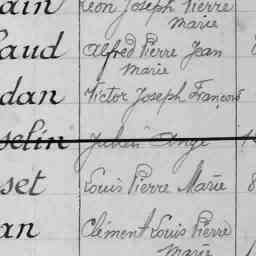 ain Léon Joseph Pierre
Marie
aud Alfred Pierre Jean 
Marie
dan Victor Joseph François
selin Julien Ange
set Louis Pierre Marie 8
an Clément Louis Pierre
Marie